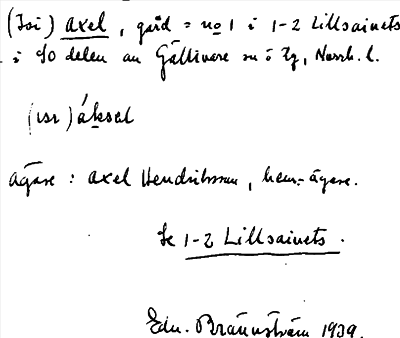 (Isi) axel, gård = no 1 i 1-2 Lillsaivets
i SO delen av Gällivare sn o tg, Norrb. l.
(ısı) áksal
ägare : axel Hendriksson, hem.-ägare.
Se 1-2 Lillsaivets.
Edv. Brännström 1939.